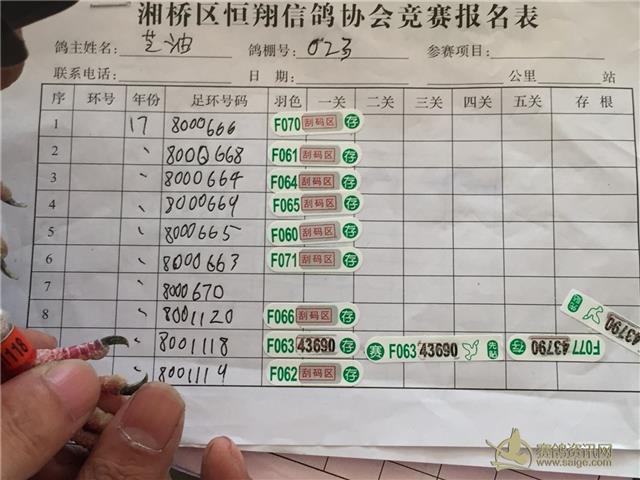 湘桥区恒翔信鸽协会竞赛报名表
鸽主姓名: 芝油 鸽棚号: 023 参赛项目:
联系电话: 日 期: 公里 站
序 环号 年份 足环号码 羽色 一关 二关 三关 四关 五关 存 根
1 17 8000666 F070 刮码区 存
2 、 8000668 F061 刮码区 存
3 、 8000664 F064 刮码区 存
4 、 8000669 F065 刮码区 存
5 、 8000665 F060 刮码区 存
6 、 8000663 F071 刮码区 存
7 、 8000670
8 、 8001120 F066 刮码区 存
、 8001118 F063 43690 存 赛 F063 43690 先贴 F077 43790
、 8001119 F062 刮码区 存
43790
1118
赛鸽资讯网
www.saige.com